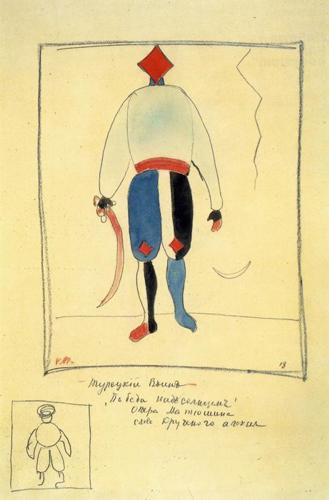 К.М. 13
Турецкій Воинъ
„Победа надъ солнцемъ"
Опера Матюшина
слов Крученого